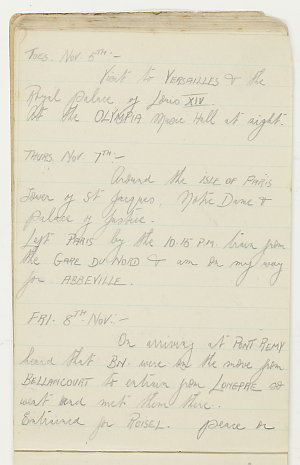 TUES. NOV. 5TH:-
Visit to VERSAILLES & the
Royal Palace of Louis XIV.
At the OLYMPIA Music Hall at night.
THURS. NOV. 7TH:-
Around the ISLE OF PARIS
Tower of St Jacques, Notre Dame &
Palace of Justice.
Left PARIS by the 10.15 P.M. train from
the GARE DU NORD & am on my way
for ABBEVILLE.
FRI. 8TH NOV:-
On arriving at PONT REMY
heard that BN. were on the move from
BELLANCOURT to entrain from LONGPRE so
went and met them there.
Entrained for ROISEL. peace or